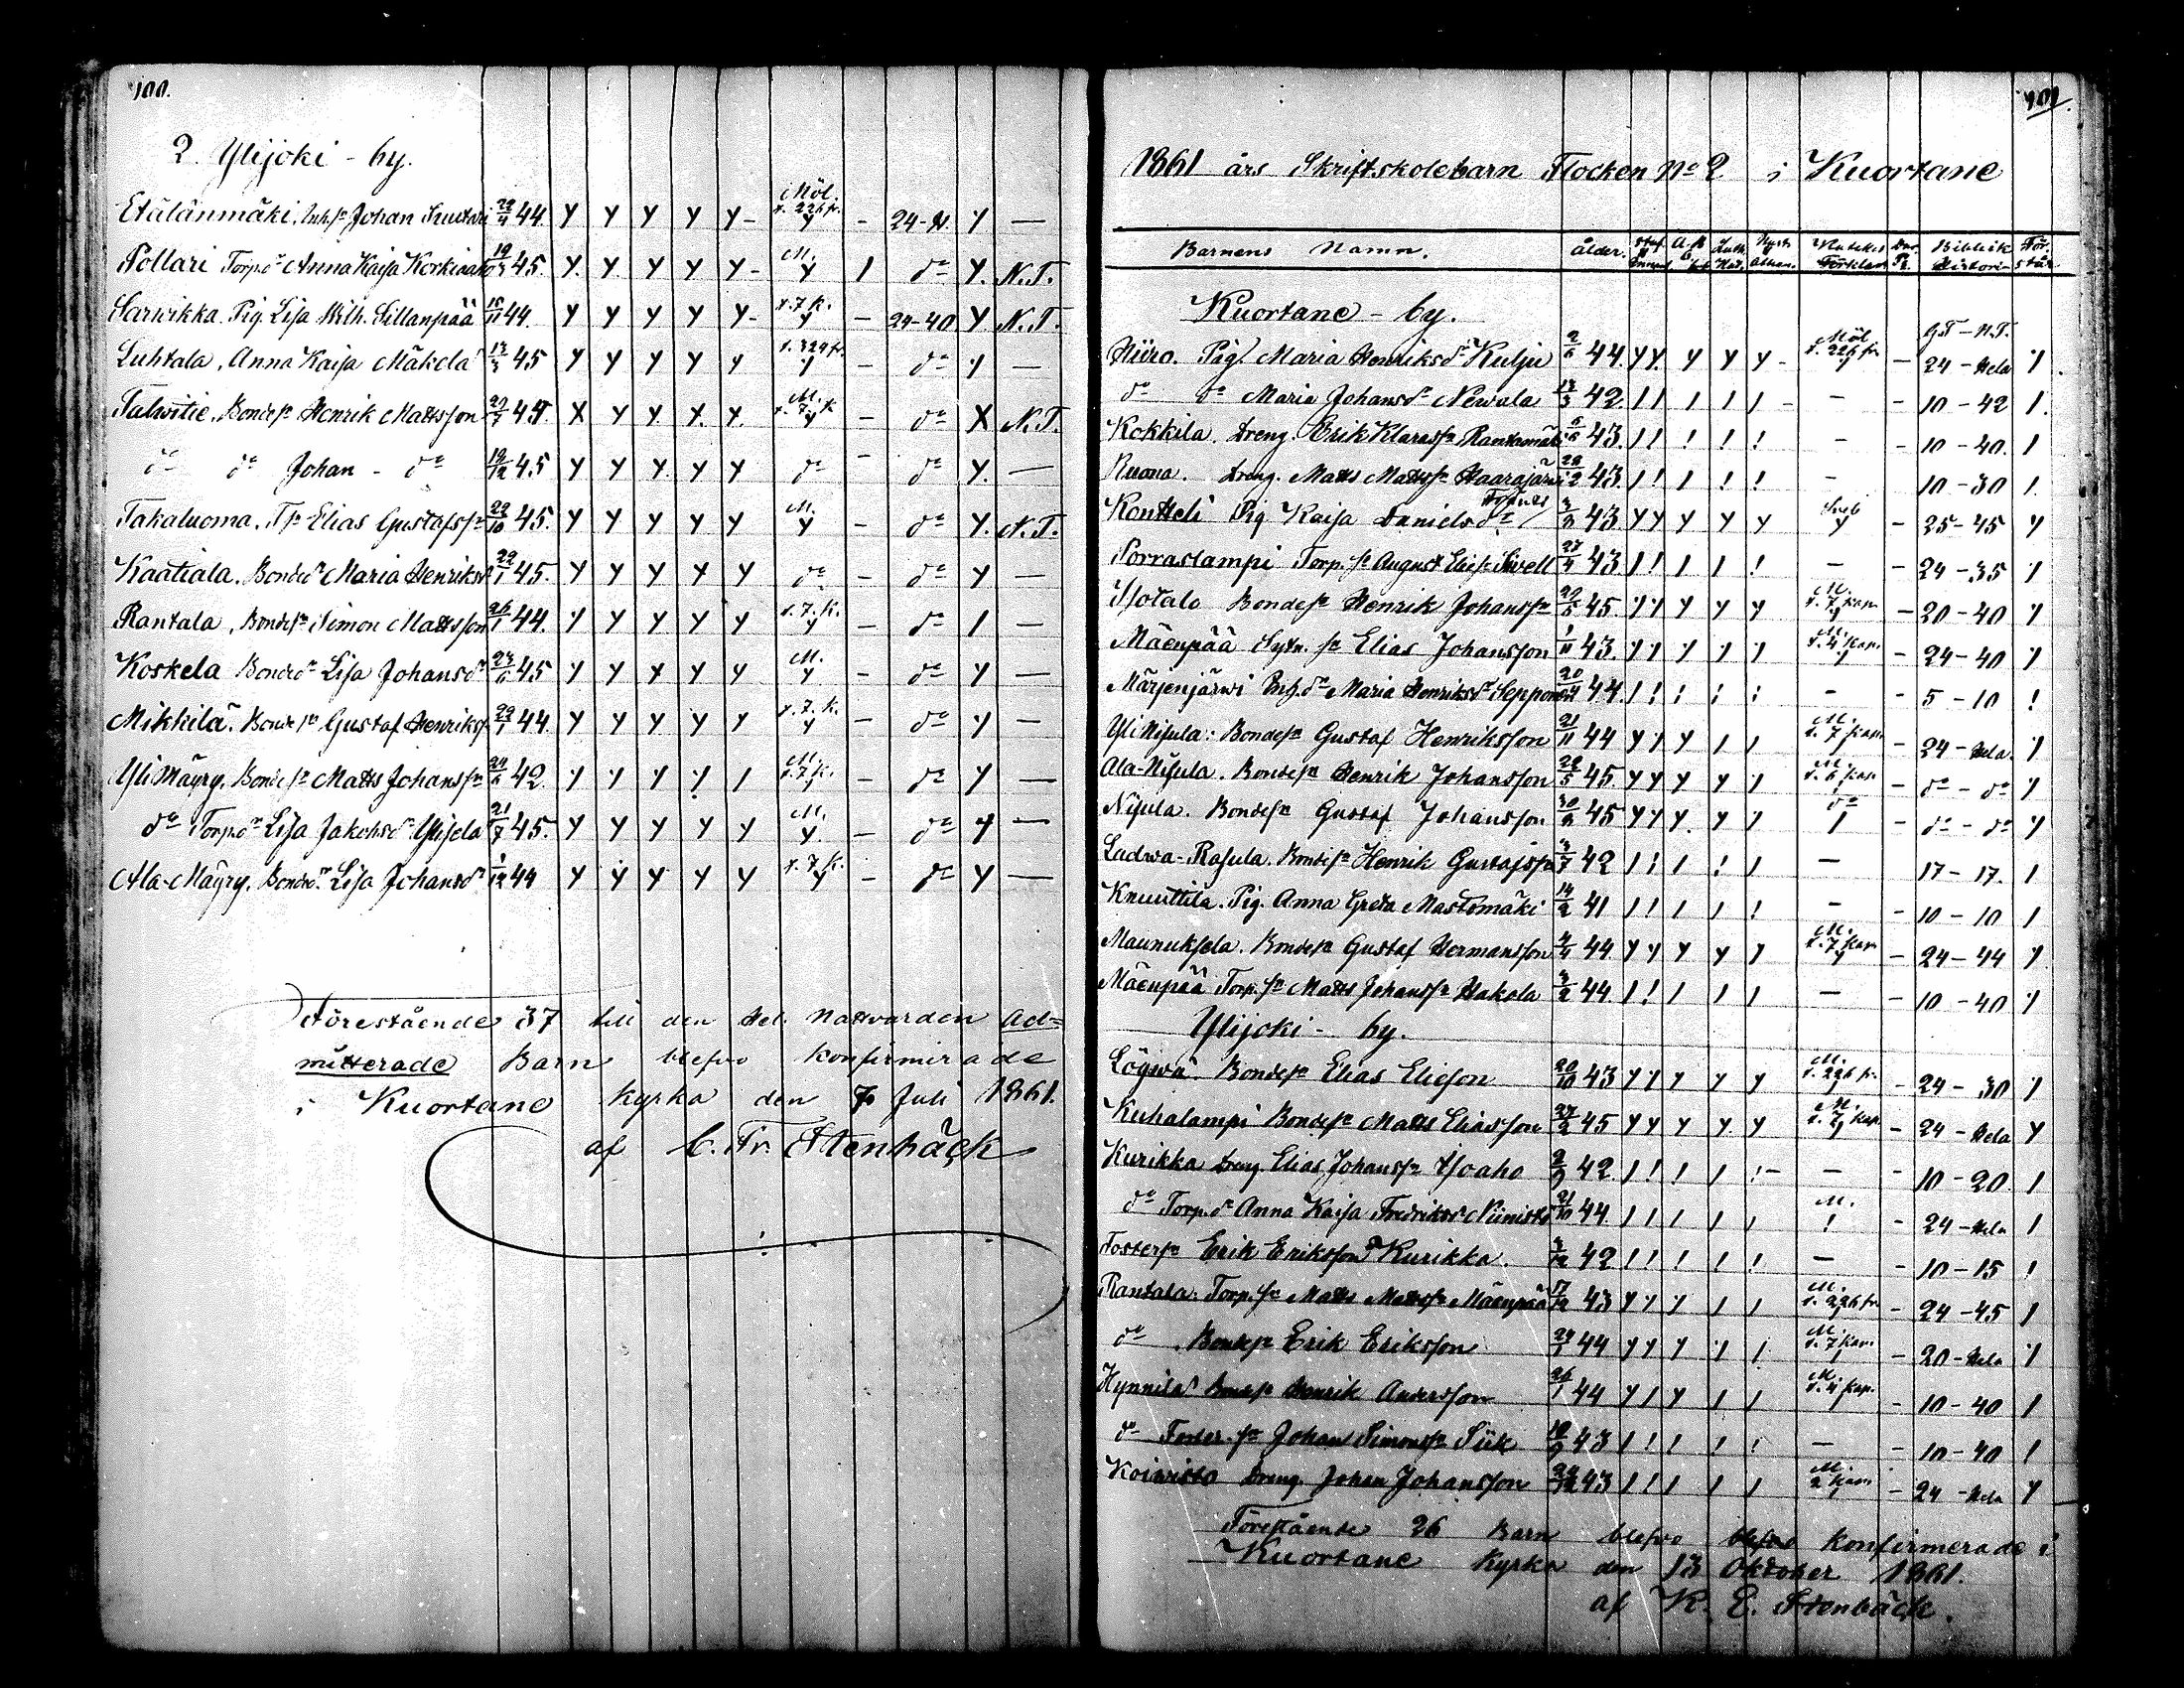 100.
2. Ylijoki - by.
Etälänmäki, Inh.sn Johan Kustari 22/4 44. Y Y Y Y Y - Möl. s. 226 fr. Y - 24-N. Y —
Pollari Torp.dr Anna Kaisa Korkiaaho 45. Y. Y Y Y Y - M. Y 1 do Y. N.T.
Sarwikka. Pig. Lisa Wilh. Sillanpää 44. Y Y Y Y Y - s. 7 k. Y - 24-40 Y N.T.
Luhtala, Anna Kaisa Mäkelä 13/3 45 Y Y Y Y Y Y - do Y —
Talwitie, Bondesn Henrik Mattsson 44. X Y Y X. X. M. s. 7 k. Y - do X N.T.
do do Johan - do 19/12 45 Y Y Y. Y Y do - do Y. —
Takaluoma, T.sn Elias Gustafssn 22/10 45. Y Y Y Y Y M. Y - do Y. N.T.
Kaatiala, Bondedr Maria Henriksdr 45. Y Y Y Y Y do - do Y —
Rantala, Bondesn Simon Mattsson 26/1 44. Y Y Y Y Y s. 7. k. Y - do 1 —
Koskela Bondedr Lisa Johansdr 45 Y Y Y Y Y M. Y - do Y —
Mikkilä. Bondesn Gustaf Henrikss. 44. Y Y Y Y Y s. 7. k. Y - do Y -
Yli Mäyry, Bondesn Matts Johanssn 42. Y Y Y Y 1 M. s. 7 k. - do Y —
do Torp.dr Lisa Jakobsdr Ylijela 21/7 45. Y Y Y Y Y M. Y. - do Y —
Ala-Mäyry, Bondedr Lisa Johansdr 1/12 44 Y Y Y Y Y s. 7 k. Y - do Y —
Förestående 37 till den Hel. Nattvarden Ad=
mitterade Barn blefvo konfirmerade
i Kuortane kyrka den 7 Juli 1861.
af C. Fr. Stenbäck
101.
1861 års Skriftskolebarn Flocken No 2 i Kuortane
Barnens Namn. Ålder. Biblisk Histori- För. stån.
Kuortane - by.
G.T - N.T.
Hiiro. Pig. Maria Henriksdr Kulju 2/6 44. Y Y. Y Y Y - Möl s. 226 fr. Y - 24 - Hela Y
do do Maria Johansdr Newala 42. 1 1 1 1 1 - - - 10 - 42 1.
Kokkila. Dreng. Erik Klarassn Rantamäki 43. 1 1 1 1 1 - - 10 - 40. 1
Ruona. Dreng. Matts Mattssn Haarajärwi 43. 1 1 1 1 1 - - 10 - 30 1.
Kontteli Pig. Kaisa Danielsdr 43 Y Y Y Y Y Y - 25-45 Y
Porraslampi Torp.sn August Eliessn Siwell 27/4 43 1 1 1 1 1 - - 24 - 35 Y
Isotalo Bondesn Henrik Johanssn 45. Y Y Y Y Y M. s. 7 kap. Y - 20-40 Y
Mäenpää Sytn. sn Elias Johansson 1/11 43. Y Y Y 1 Y M. s. 4 kap. 1 - 24-40 Y
Märjenjärwi Inh.dr Maria Henriksdr Sepponen 44. 1 1 1 1 1 - - 5 - 10 1
Yli Nisula: Bondesn Gustaf Henriksson 21/11 44 Y Y Y 1 1 M. s. 7 kap. - 24 - Hela. Y
Ala-Nisula. Bondesn Henrik Johansson 45. Y Y Y Y Y M. s. 6 kap. - do - do Y
Nisula. Bondesn Gustaf Johansson 45 Y Y Y. Y Y do 1 - do - do Y
Ladwa-Rasula. Bondesn Henrik Gustafssn 42 1 1 1 1 1 — 17 - 17. 1
Knuuttila. Pig. Anna Greta Mastomäki 14/2 41 1 1 1 1 1 - - 10 - 10 1
Maunuksela. Bondesn Gustaf Hermansson 44. Y Y Y Y Y M. s. 7 kap. Y - 24-44 Y
Mäenpää Torp. sn Matts Johanssn Hakola 44 1 1 1 1 1 — - 10 - 40 Y
Ylijoki - by.
Lögwä. Bondesn Elias Elieson 20/10 43 Y Y Y Y Y M. s. 226 fr. Y - 24 - 30 Y
Kuhalampi Bondesn Matts Eliasson 27/2 45 Y Y Y Y. Y M. s. 7 kap. Y - 24 - Hela Y
Kurikka Dreng. Elias Johanssn Isoaho 42. 1 1 1 1 1 - - - 10 - 20. 1
do Torp.dr Anna Kaisa Fredriksdr Niinistö 21/10 44. 1 1 1 1 1 M. 1 - 24 - Hela 1
Fostersn Erik Eriksson Kurikka. 42. 1 1 1 1 1 — - 10-15 1
Rantala. Torp.sn Matts Mattssn Mäenpää 17/12 43 Y Y Y 1 1 M. s. 226 fr. 1 - 24-45 1
do Bondesn Erik Eriksson 44 Y Y Y 1 1 M. s. 7 kap. 1 - 20 - Hela Y
Hynnilä Bondesn Henrik Andersson 26/1 44 Y 1 Y 1 1 M. s. 4 kap. 1 - 10-40 1
do Foster. sn Johan Simonssn Siik 43 1 1 1 1 1 — - 10-40 1
Koiwisto Dreng. Johan Johansson 43 1 1 1 1 1 M. 2 kap. 1 - 24 - Hela Y
Förestående 26 Barn blefvo blefvo konfirmerade i
Kuortane Kyrka den 13 Oktober 1861.
af K. E. Stenbäck.